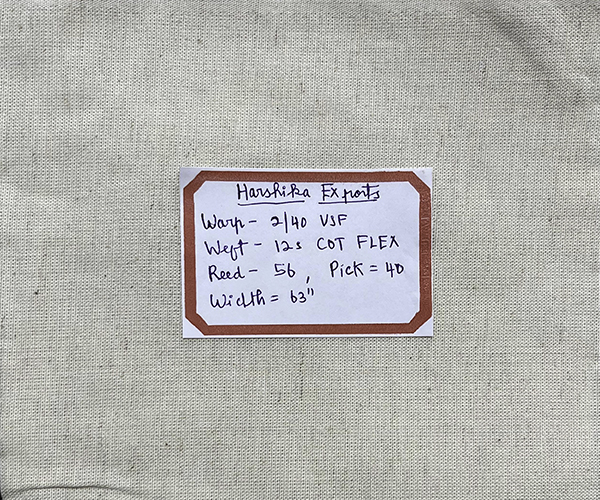 Harshika Exports
Warp - 2/40 VSF
Weft - 12s COT FLEX
Reed - 56, Pick = 40
Width = 63"